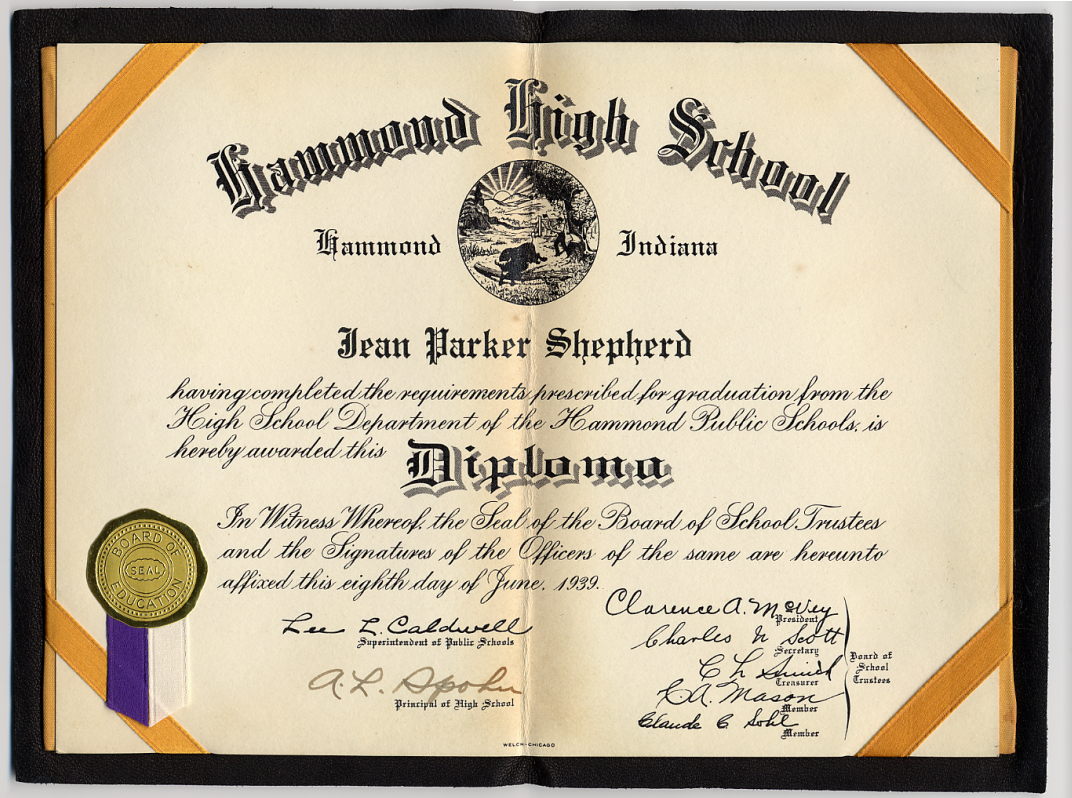 Hammond High School
Hammond Indiana
Jean Parker Shepherd
having completed the requirements prescribed for graduation from the
High School Department of the Hammond Public Schools, is
hereby awarded this
Diploma
In Witness Whereof, the Seal of the Board of School Trustees
and the Signatures of the Officers of the same are hereunto
affixed this eighth day of June, 1939.
BOARD OF
SEAL
EDUCATION
Lee L. Caldwell
Superintendent of Public Schools
A. L. Spohn
Principal of High School
Clarence A. McVey
President
Charles N Scott
Secretary
C L
Treasurer
C. A. Mason
Member
Claude C. Sohl
Member
Board of
School
Trustees
WELCH-CHICAGO